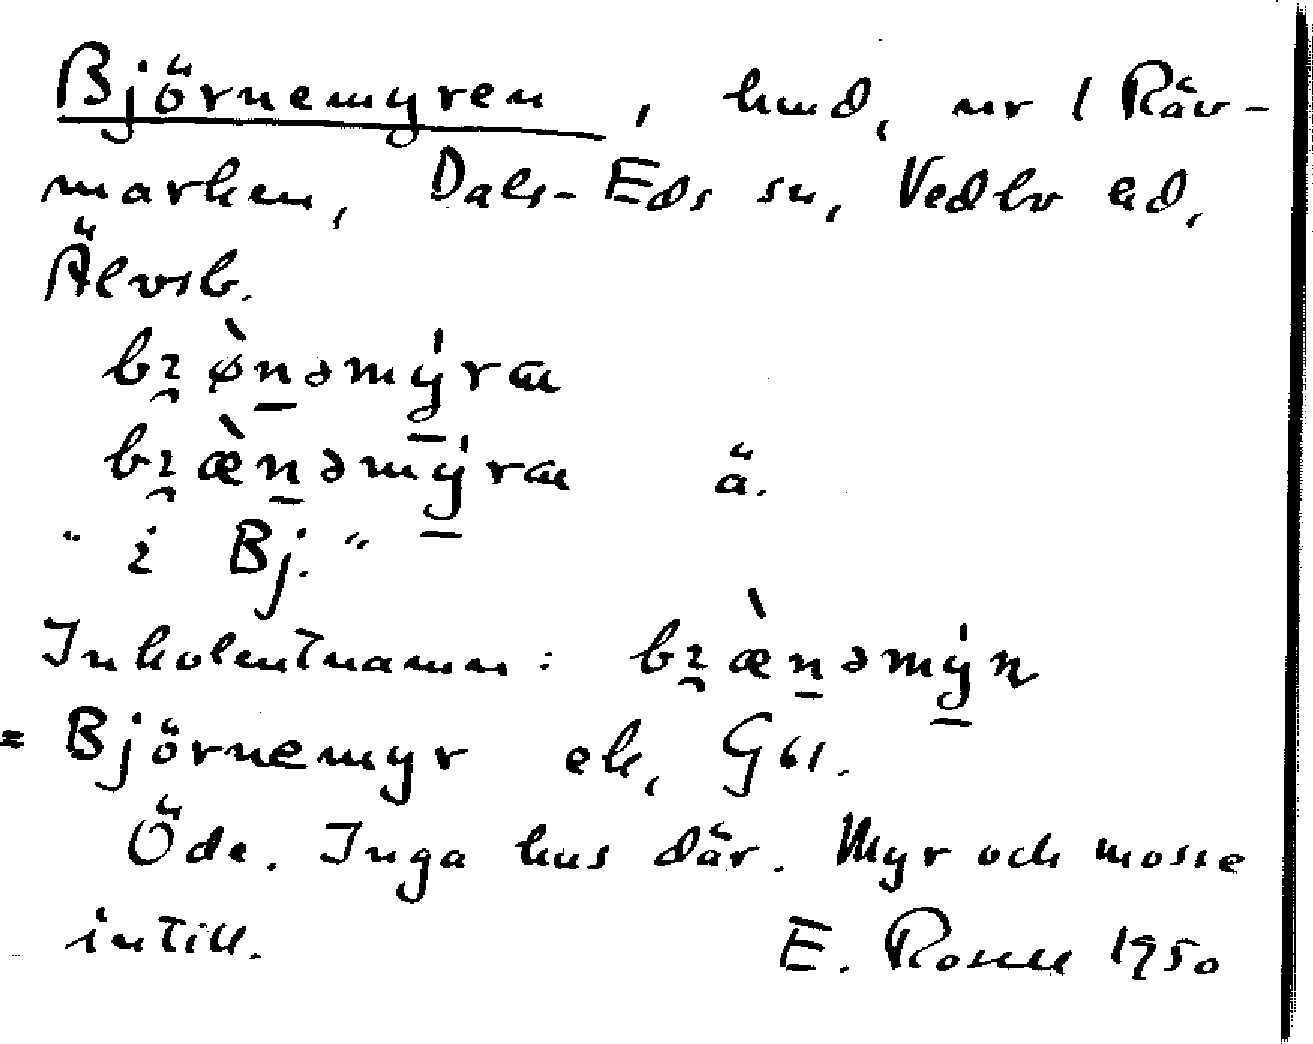 Björnemyren, hmd, nr 1 Räv-
marken, Dals-Eds sn, Vedbo hd,
Älvsb.
brø̀nəmýra
bræ̀nəmýra ä.
" i Bj. "
Inkolentnamn: bræ̀nəmýn
= Björnemyr ek, G61.
Öde. Inga hus där. Myr och mosse
intill. E. Rosell 1950